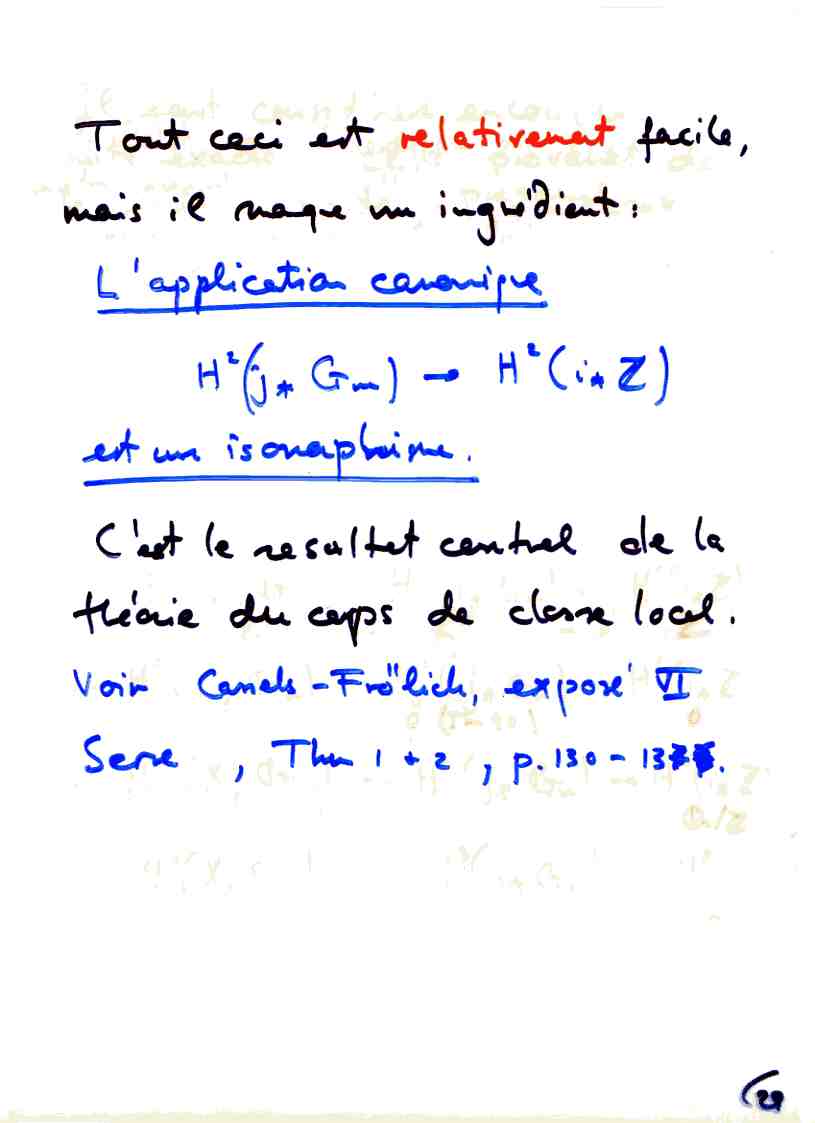 Tout ceci est relativement facile,
mais il maque un ingrédient :
L'application canonique
H²(j⁎ Gm) → H²(i⁎ ℤ)
est un isomorphisme.
C'est le resultat central de la
théorie du corps de classe local.
Voir Cassels-Frölich, exposé VI
Serre, Thm 1 + 2, p. 130 - 13